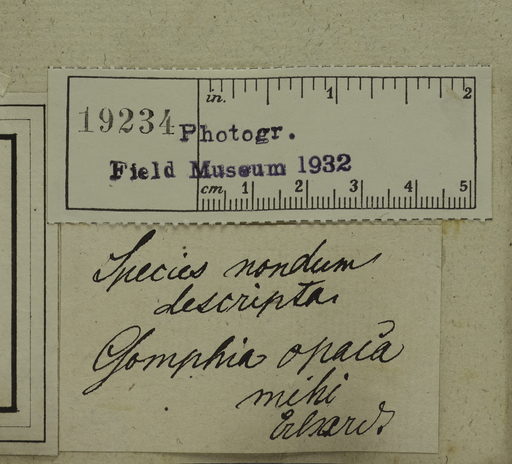 in. 1 2
19234 Photogr.
Field Museum 1932
cm 1 2 3 4 5
Species nondum
descripta.
Gomphia opaca
mihi